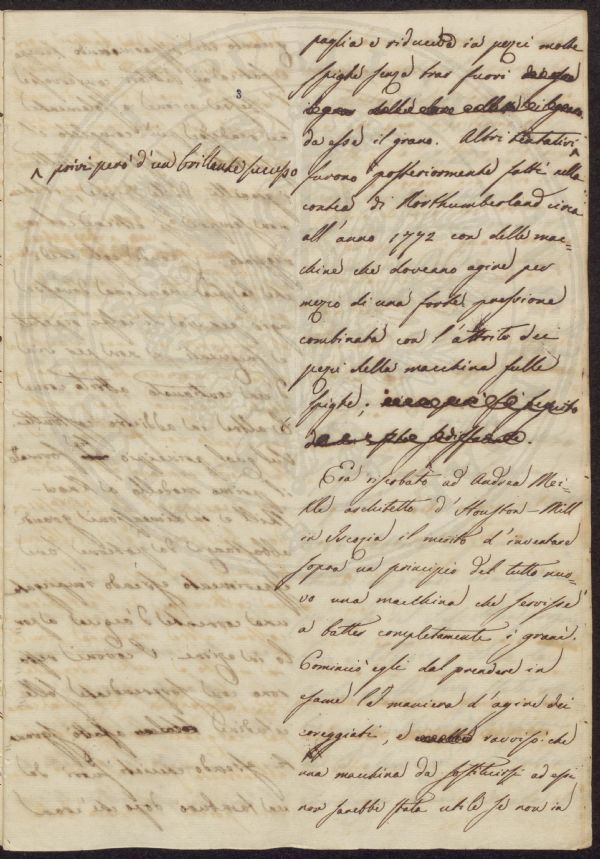 3
paglia e riducevà in pezzi molte
spighe senza trar fuori
da esse il grano. Altri tentativi ^
^ privi però d'un brillante successo
furono posteriormente fatti nella
contea di Northumberland circa
all'anno 1772 con delle mac=
chine che doveano agire per
mezzo di una forte pressione
combinata con l'attrito dei
pezzi della macchina sulle
spighe;
Era riserbato ad Andrea Mei=
kle architetto d'Houston-Mill
in Iscozia il merito d'inventare
sopra un principio del tutto nuo=
vo una macchina che servisse
a batter completamente i grani.
Cominciò egli dal prendere in
esame la maniera d'agire dei
coreggiati, e ravvisò che
una macchina da sostituirsi ad essi
non sarebbe stata utile se non in